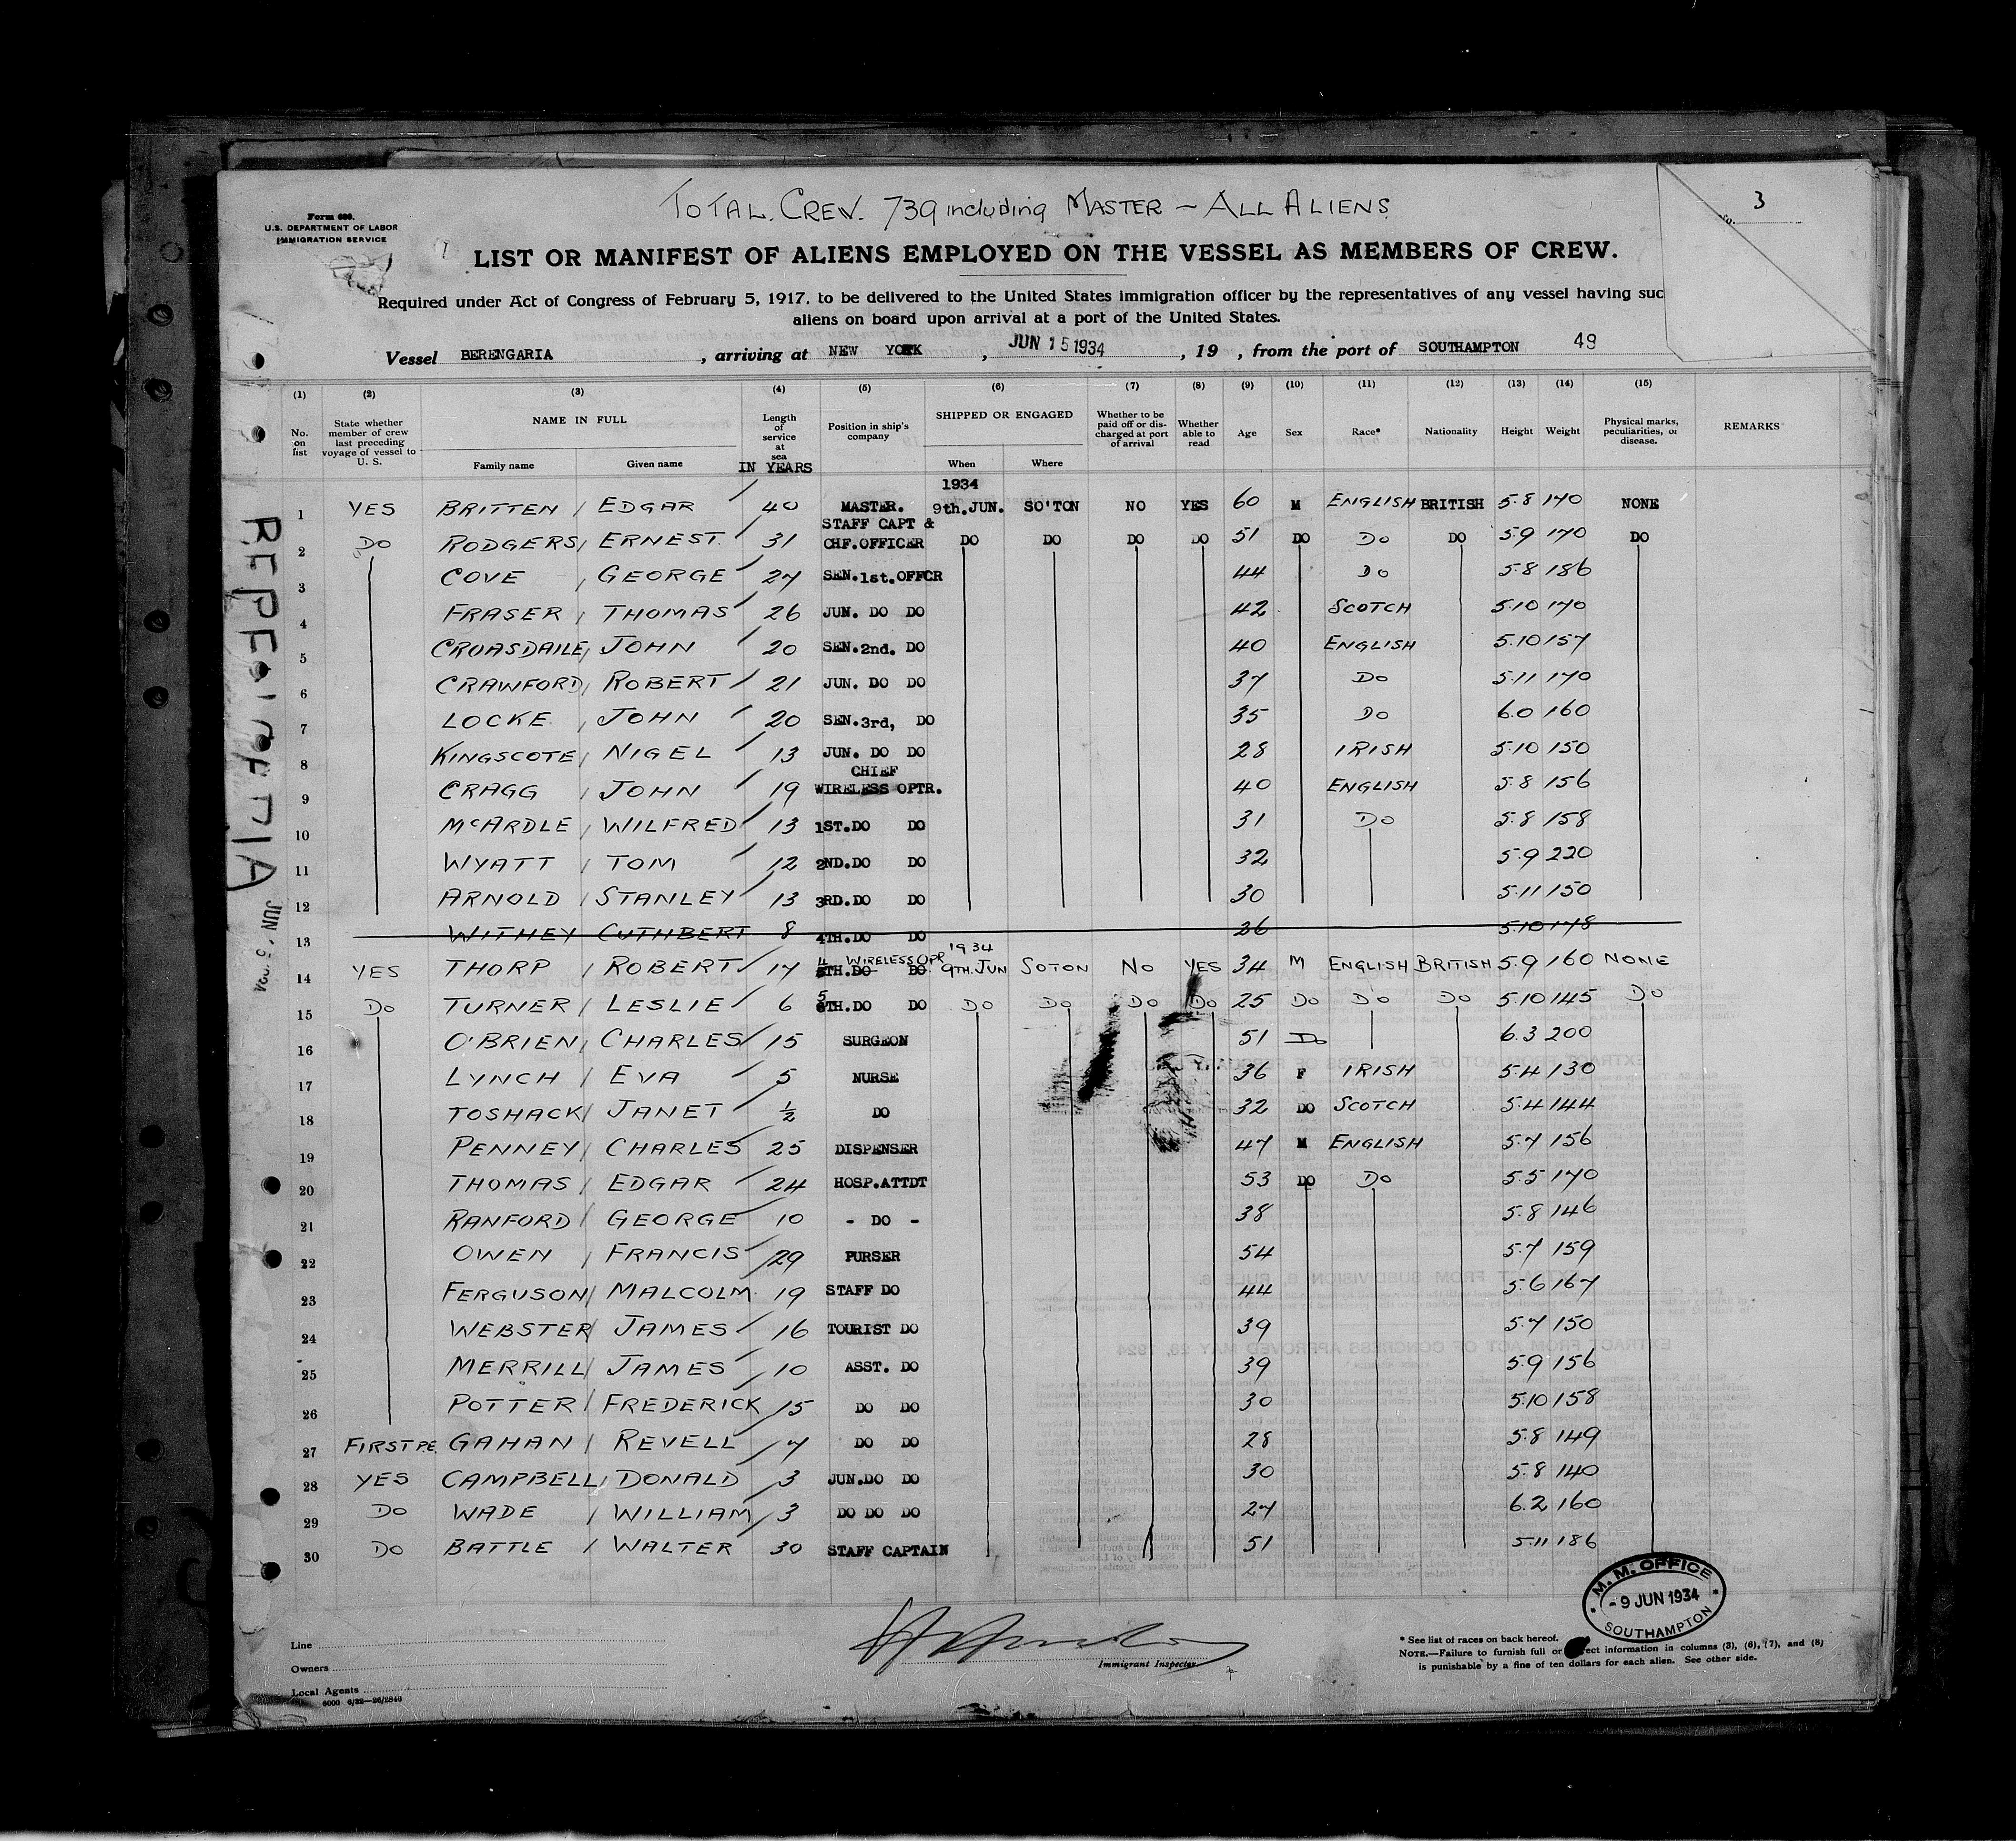 TOTAL. CREW. 739 including MASTER – ALL ALIENS.
3
No.
Form 680.
U.S. DEPARTMENT OF LABOR
IMMIGRATION SERVICE
LIST OR MANIFEST OF ALIENS EMPLOYED ON THE VESSEL AS MEMBERS OF CREW.
Required under Act of Congress of February 5, 1917, to be delivered to the United States immigration officer by the representatives of any vessel having suc
aliens on board upon arrival at a port of the United States.
Vessel BERENGARIA , arriving at NEW YORK , JUN 15 1934 , 19 , from the port of SOUTHAMPTON 49
(1) (2) (3) (4) (5) (6) (7) (8) (9) (10) (11) (12) (13) (14) (15)
No. on list State whether member of crew last preceding voyage of vessel to U. S. NAME IN FULL Family name Given name Length of service at sea IN YEARS Position in ship's company SHIPPED OR ENGAGED When Where Whether to be paid off or discharged at port of arrival Whether able to read Age Sex Race* Nationality Height Weight Physical marks, peculiarities, or disease. REMARKS
1934
1 YES BRITTEN / EDGAR 40 MASTER. 9th.JUN. SO'TON NO YES 60 M ENGLISH BRITISH 5.8 170 NONE
2 DO RODGERS / ERNEST. 31 STAFF CAPT & CHF.OFFICER DO DO DO DO 51 DO DO DO 5.9 170 DO
3 COVE / GEORGE 27 SEN.1st.OFFCR 44 DO 5.8 186
4 FRASER / THOMAS 26 JUN. DO DO 42 SCOTCH 5.10 170
5 CROASDAILE / JOHN 20 SEN.2nd. DO 40 ENGLISH 5.10 157
6 CRAWFORD / ROBERT 21 JUN. DO DO 37 DO 5.11 170
7 LOCKE / JOHN 20 SEN.3rd, DO 35 DO 6.0 160
8 KINGSCOTE / NIGEL 13 JUN. DO DO 28 IRISH 5.10 150
9 CRAGG / JOHN 19 CHIEF WIRELESS OPTR. 40 ENGLISH 5.8 156
10 McARDLE / WILFRED 13 1ST.DO DO 31 DO 5.8 158
11 WYATT / TOM 12 2ND.DO DO 32 5.9 220
12 ARNOLD / STANLEY 13 3RD.DO DO 30 5.11 150
13 WITHEY CUTHBERT 8 4TH.DO DO 26 5.10 178
14 YES THORP / ROBERT 17 4 TH.DO WIRELESS OPR DO 1934 9TH.JUN SOTON NO YES 34 M ENGLISH BRITISH 5.9 160 NONE
15 DO TURNER / LESLIE 6 5 TH.DO DO DO DO DO DO 25 DO DO DO 5.10 145 DO
16 O'BRIEN / CHARLES 15 SURGEON 51 DO 6.3 200
17 LYNCH / EVA 5 NURSE 36 F IRISH 5.4 130
18 TOSHACK / JANET ½ DO 32 DO SCOTCH 5.4 144
19 PENNEY / CHARLES 25 DISPENSER 47 M ENGLISH 5.7 156
20 THOMAS / EDGAR 24 HOSP.ATTDT 53 DO DO 5.5 170
21 RANFORD / GEORGE 10 - DO - 38 5.8 146
22 OWEN / FRANCIS 29 PURSER 54 5.7 159
23 FERGUSON / MALCOLM 19 STAFF DO 44 5.6 167
24 WEBSTER / JAMES 16 TOURIST DO 39 5.7 150
25 MERRILL / JAMES 10 ASST. DO 39 5.9 156
26 POTTER / FREDERICK 15 DO DO 30 5.10 158
27 FIRST PE. GAHAN / REVELL 7 DO DO 28 5.8 149
28 YES CAMPBELL / DONALD 3 JUN.DO DO 30 5.8 140
29 DO WADE / WILLIAM 3 DO DO DO 27 6.2 160
30 DO BATTLE / WALTER 30 STAFF CAPTAIN 51 5.11 186
M. M. OFFICE
- 9 JUN 1934
SOUTHAMPTON
Line
Owners
Local Agents
6000 6/32—26/2846
Immigrant Inspector
* See list of races on back hereof.
NOTE.—Failure to furnish full or rect information in columns (3), (6), (7), and (8)
is punishable by a fine of ten dollars for each alien. See other side.